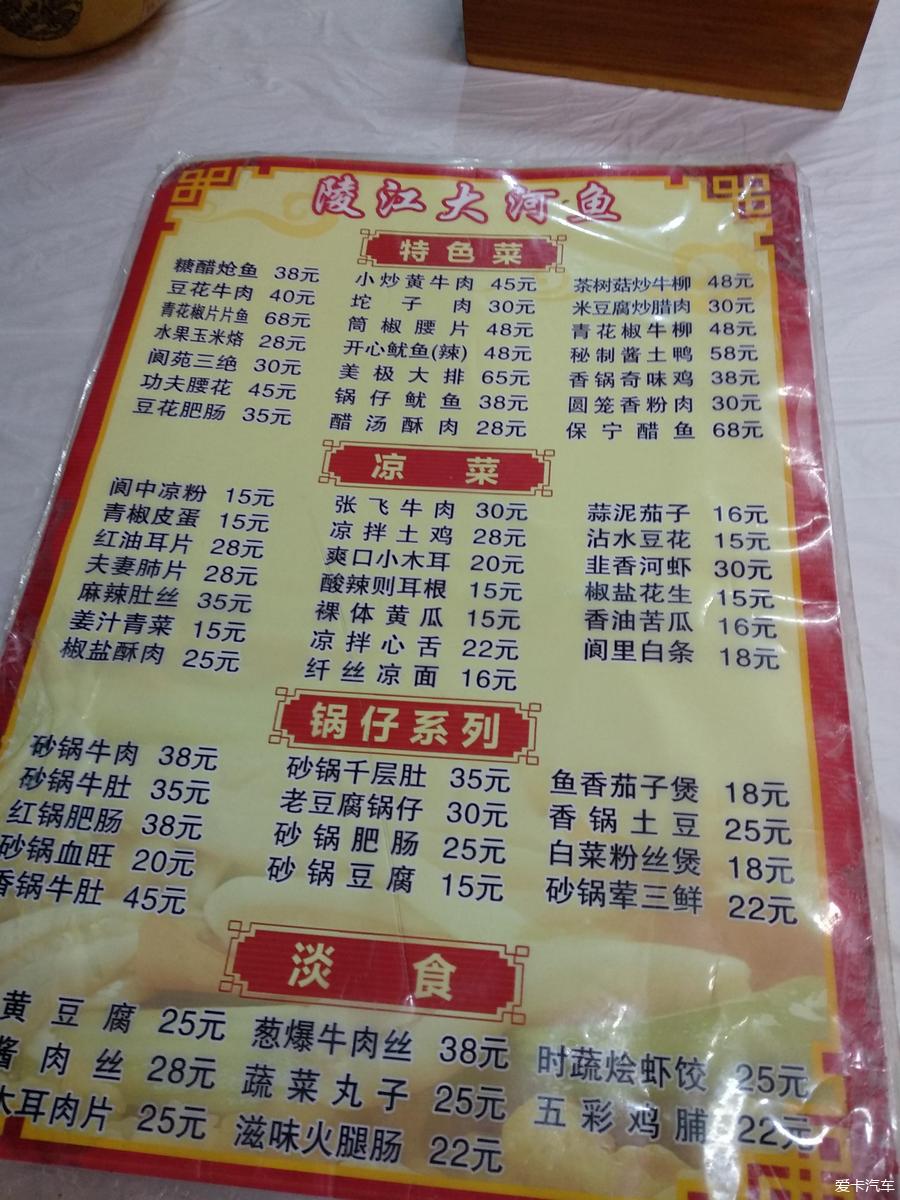 陵江大河鱼
特色菜
糖醋炝鱼 38元
豆花牛肉 40元
青花椒片片鱼 68元
水果玉米烙 28元
阆苑三绝 30元
功夫腰花 45元
豆花肥肠 35元
小炒黄牛肉 45元
坨子肉 30元
筒椒腰片 48元
开心鱿鱼(辣) 48元
美极大排 65元
锅仔鱿鱼 38元
醋汤酥肉 28元
茶树菇炒牛柳 48元
米豆腐炒腊肉 30元
青花椒牛柳 48元
秘制酱土鸭 58元
香锅奇味鸡 38元
圆笼香粉肉 30元
保宁醋鱼 68元
凉菜
阆中凉粉 15元
青椒皮蛋 15元
红油耳片 28元
夫妻肺片 28元
麻辣肚丝 35元
姜汁青菜 15元
椒盐酥肉 25元
张飞牛肉 30元
凉拌土鸡 28元
爽口小木耳 20元
酸辣则耳根 15元
裸体黄瓜 15元
凉拌心舌 22元
纤丝凉面 16元
蒜泥茄子 16元
沾水豆花 15元
韭香河虾 30元
椒盐花生 15元
香油苦瓜 16元
阆里白条 18元
锅仔系列
砂锅牛肉 38元
砂锅牛肚 35元
红锅肥肠 38元
砂锅血旺 20元
香锅牛肚 45元
砂锅千层肚 35元
老豆腐锅仔 30元
砂锅肥肠 25元
砂锅豆腐 15元
鱼香茄子煲 18元
香锅土豆 25元
白菜粉丝煲 18元
砂锅荤三鲜 22元
淡食
黄豆腐 25元
酱肉丝 28元
木耳肉片 25元
葱爆牛肉丝 38元
蔬菜丸子 25元
滋味火腿肠 22元
时蔬烩虾饺 25元
五彩鸡脯 22元
爱卡汽车